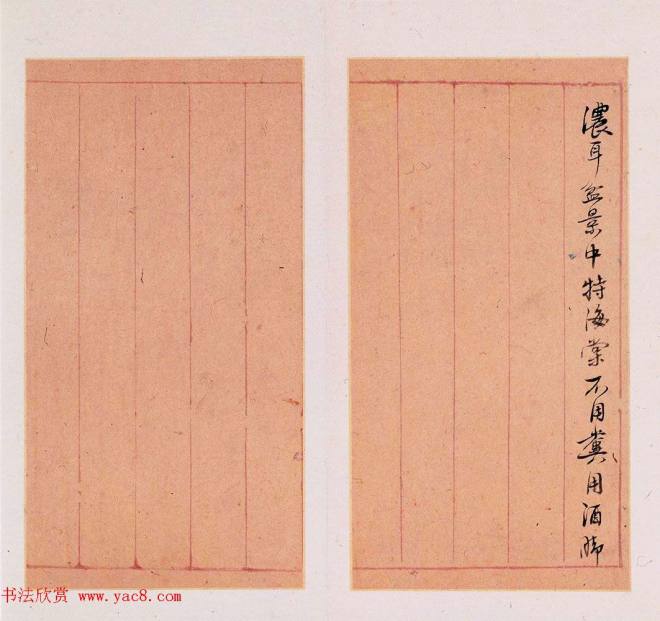 濃耳盆景中特海棠不用糞用酒腳
书法欣赏 www.yac8.com